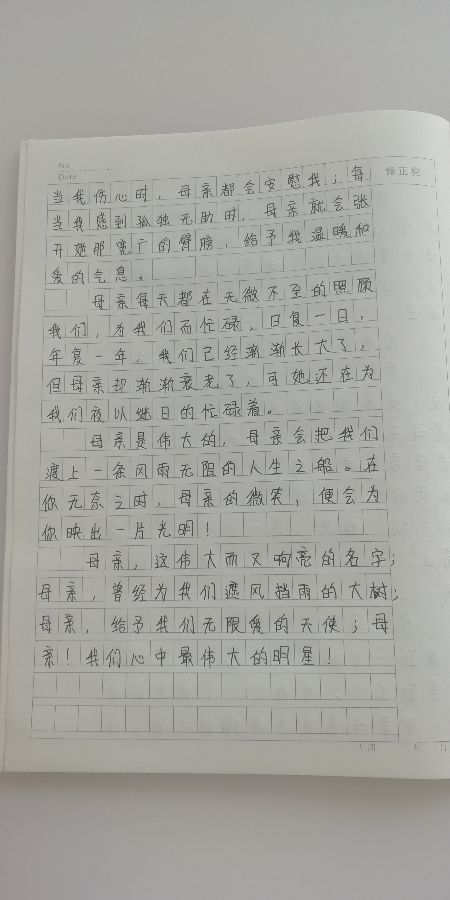 No
Date
修正栏
当我伤心时，母亲都会安慰我；每
当我感到孤独无助时，母亲就会张
开她那宽广的臂膀，给予我温暖和
爱的气息。
母亲每天都在无微不至的照顾
我们，为我们而忙碌，日复一日，
年复一年，我们已经渐渐长大了，
但母亲却渐渐衰老了，可她还在为
我们夜以继日的忙碌着。
母亲是伟大的，母亲会把我们
渡上一条风雨无阻的人生之船。在
你无奈之时，母亲的微笑，便会为
你映出一片光明！
母亲，这伟大而又响亮的名字；
母亲，曾经为我们遮风挡雨的大树；
母亲，给予我们无限爱的天使；母
亲！我们心中最伟大的明星！
年 月